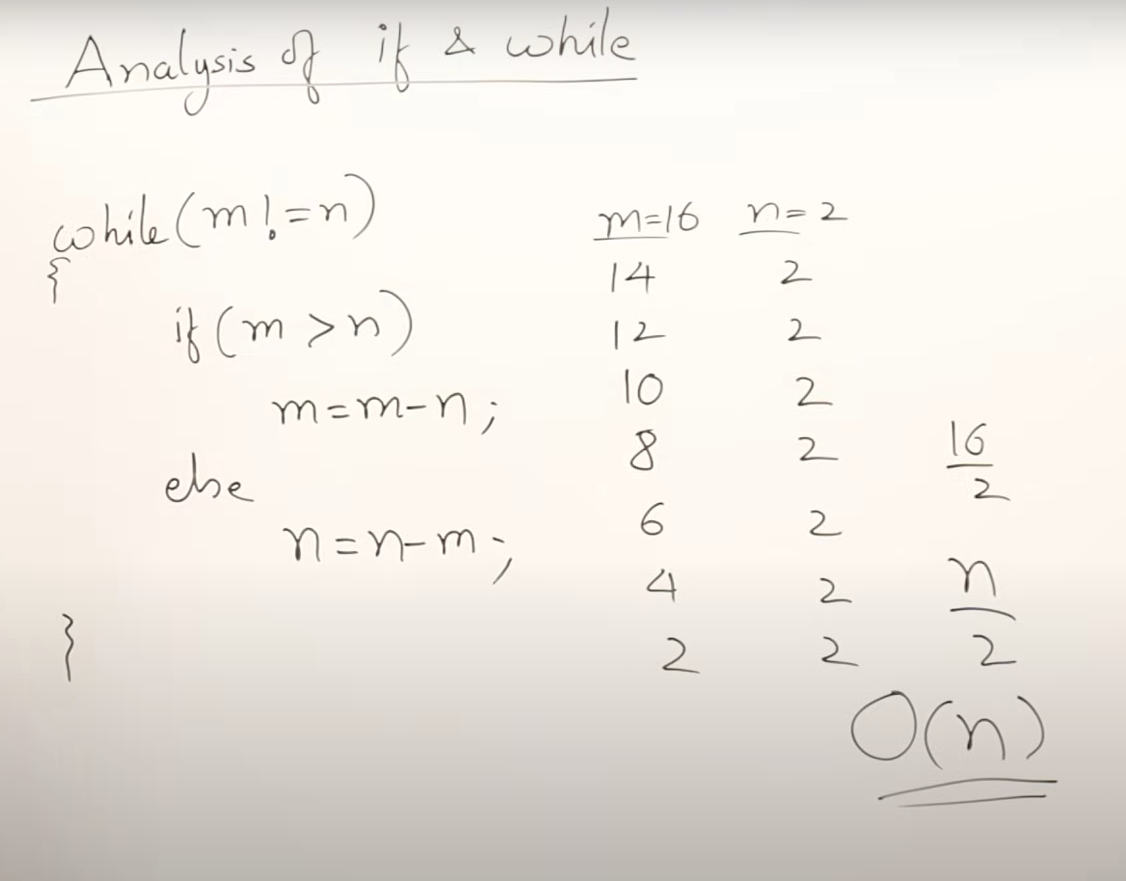 Analysis of if & while
while(m!=n)
{
if(m>n)
m=m-n;
else
n=n-m;
}
m=16 n=2
14 2
12 2
10 2
8 2
6 2
4 2
2 2
16
2
n
2
O(n)